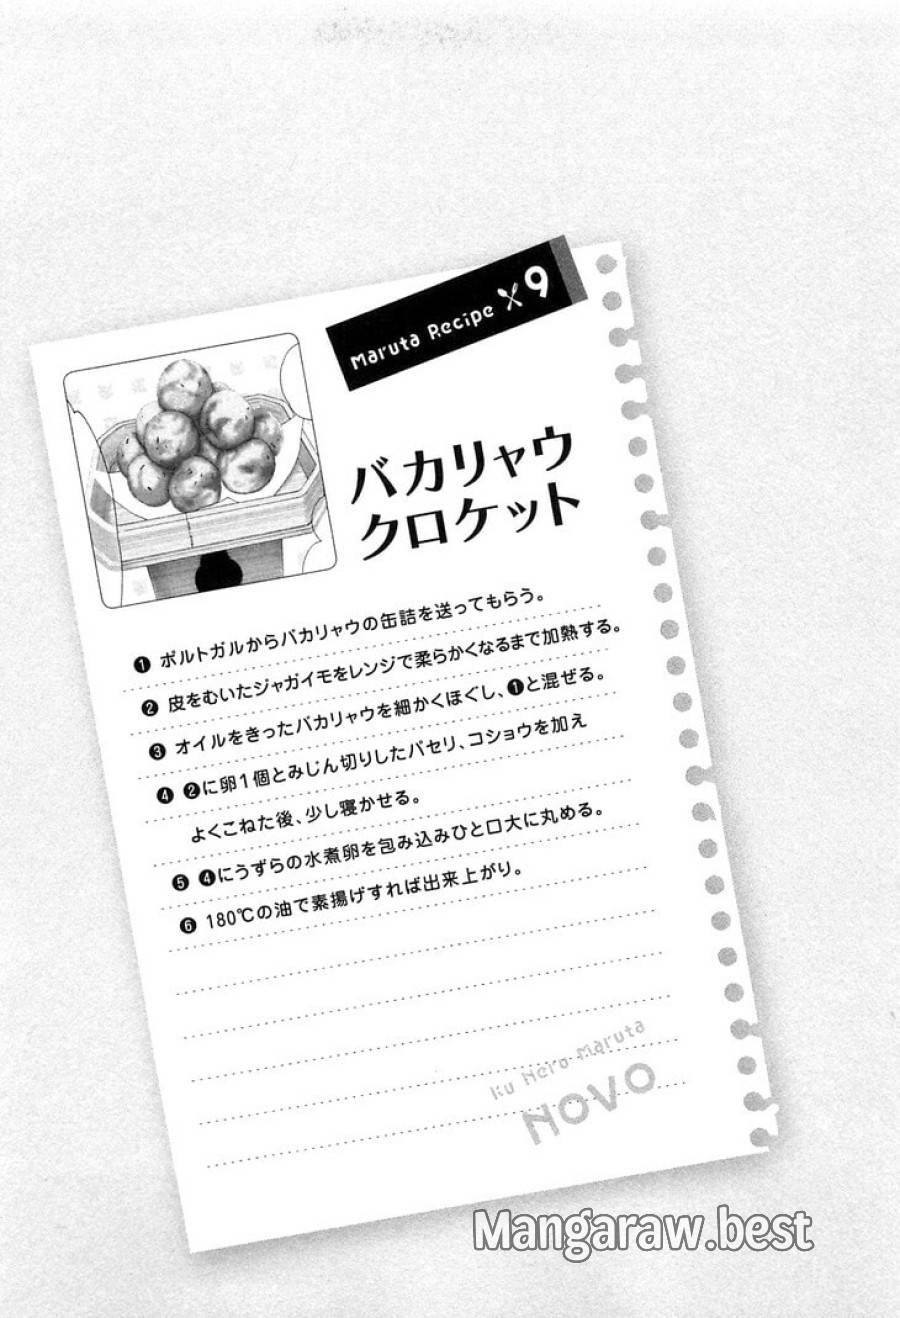 Maruta Recipe 9
バカリャウ
クロケット
❶ ポルトガルからバカリャウの缶詰を送ってもらう。
❷ 皮をむいたジャガイモをレンジで柔らかくなるまで加熱する。
❸ オイルをきったバカリャウを細かくほぐし、❶と混ぜる。
❹ ❷に卵1個とみじん切りしたパセリ、コショウを加え
よくこねた後、少し寝かせる。
❺ ❹にうずらの水煮卵を包み込みひと口大に丸める。
❻ 180℃の油で素揚げすれば出来上がり。
Ku Hero Maruta
NOVO
Mangaraw.best